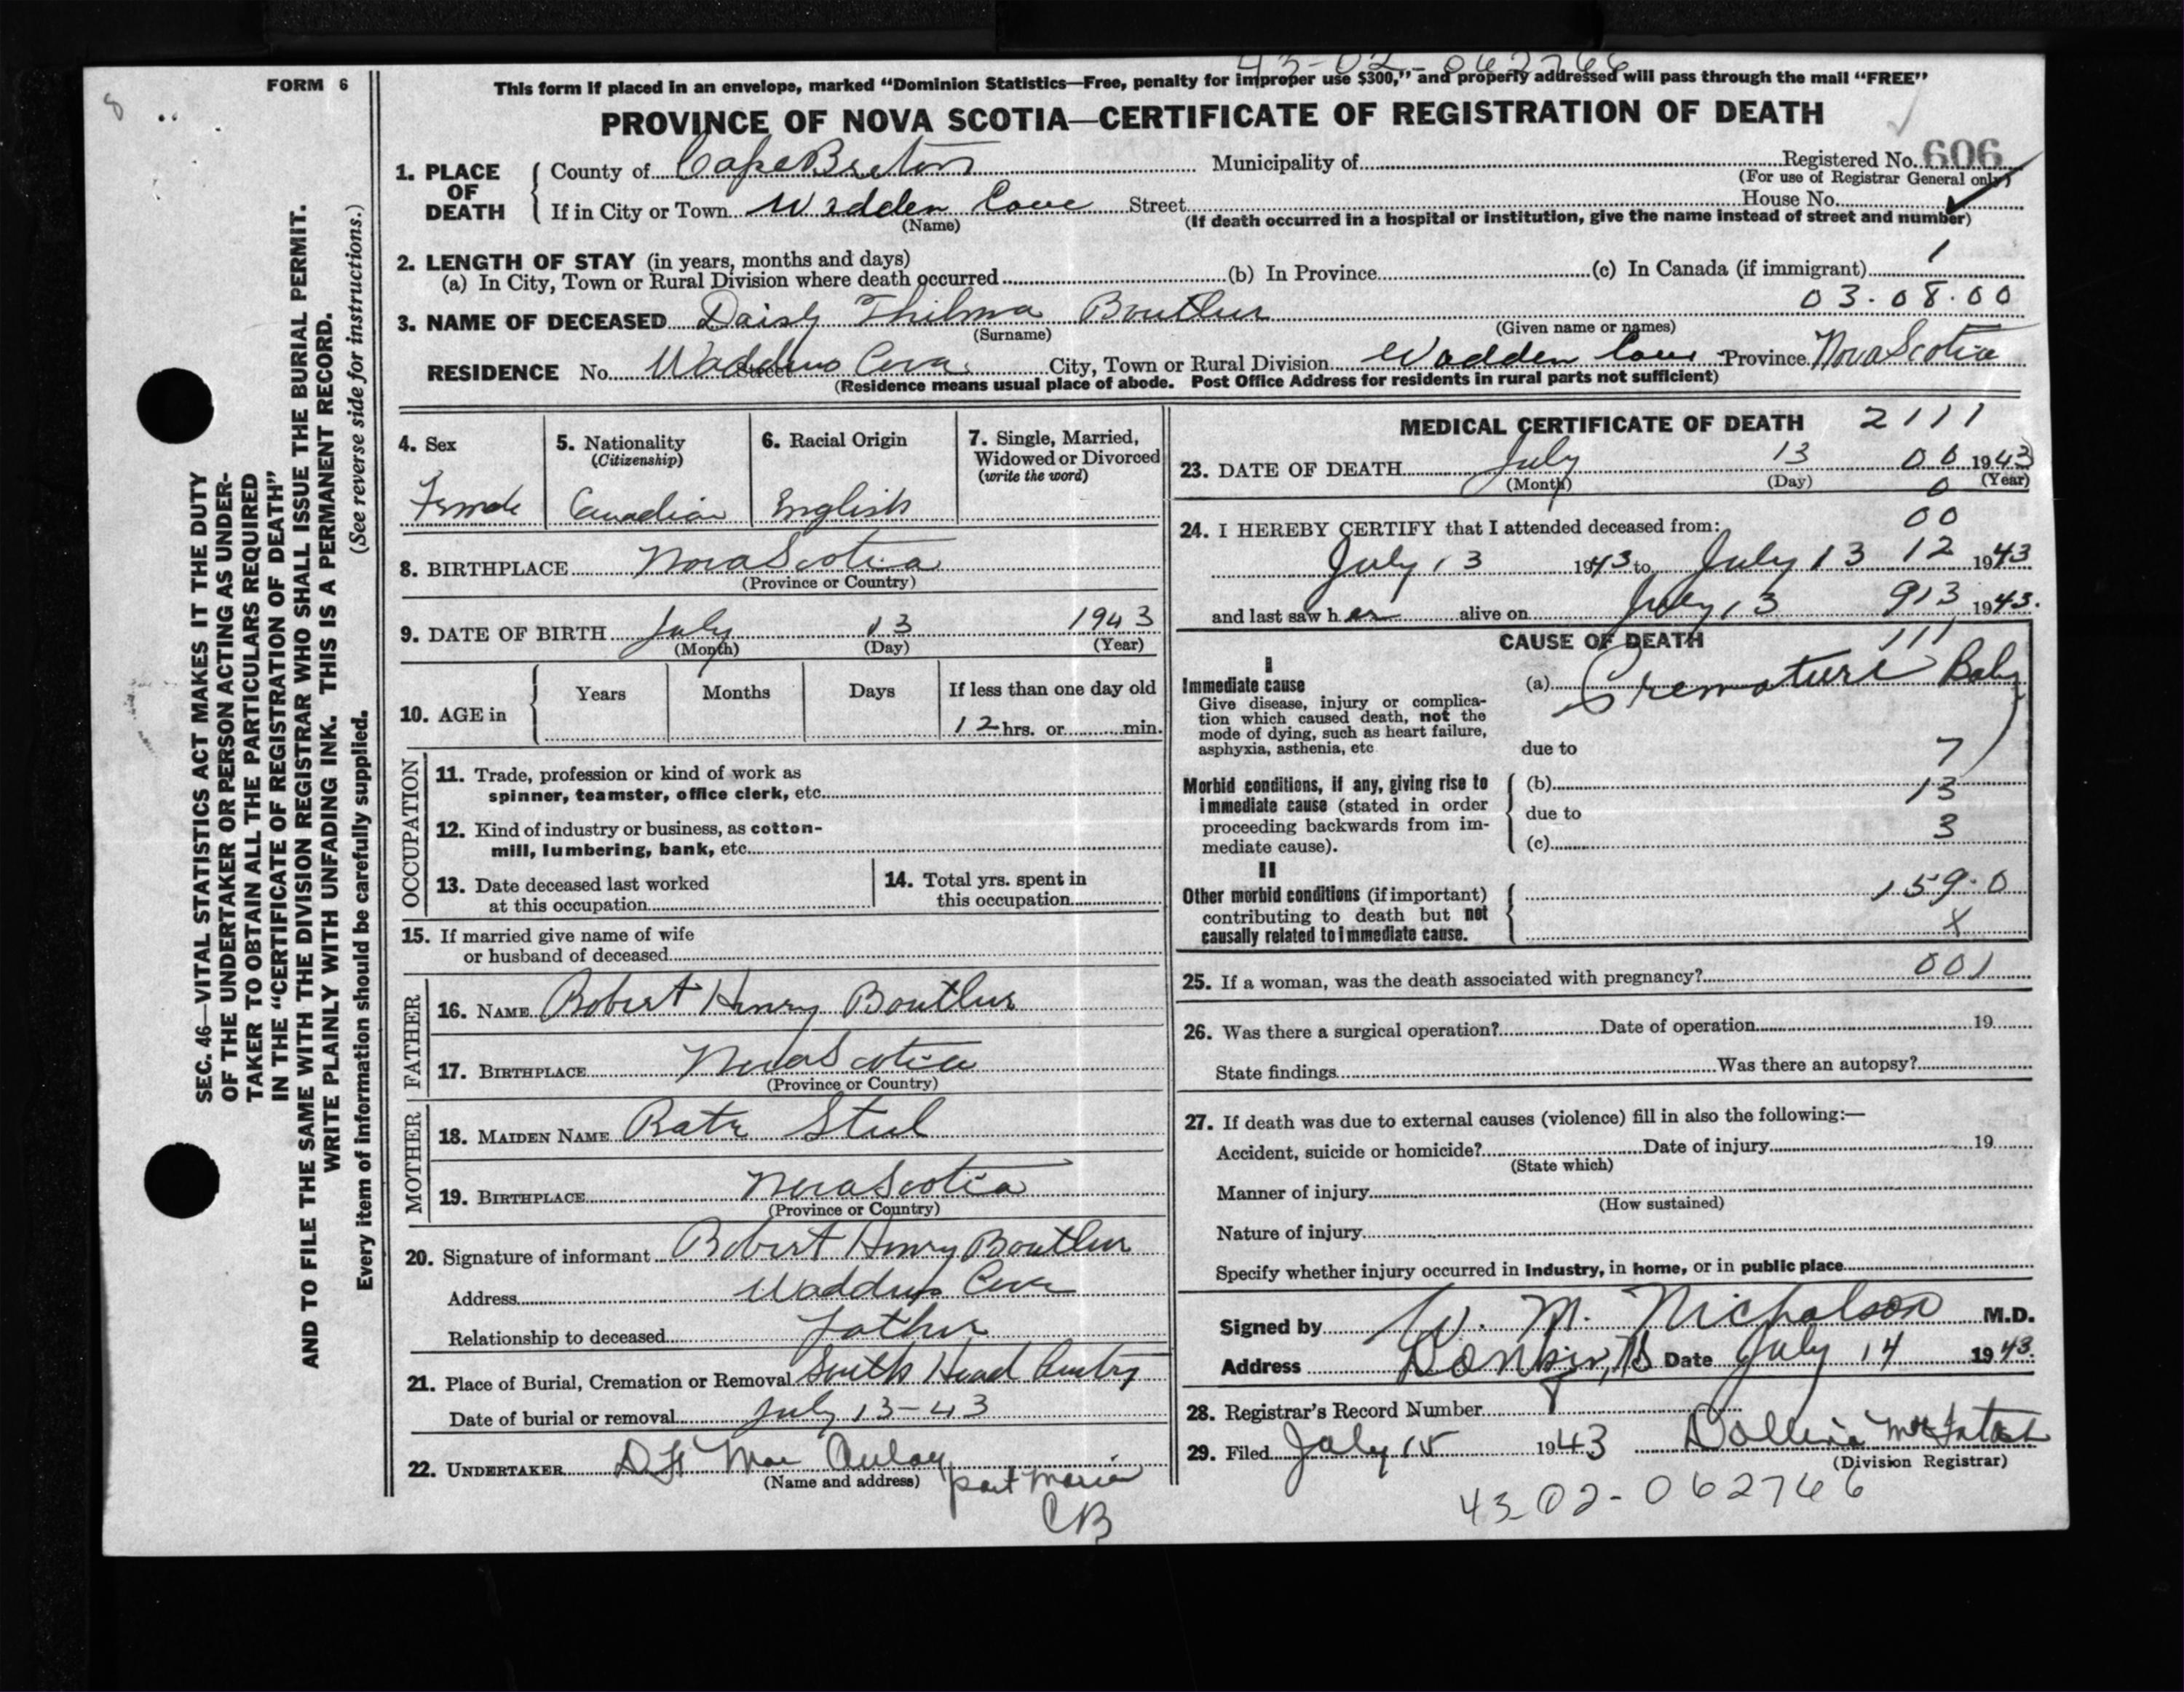 43-02-062766
FORM 6
8
This form if placed in an envelope, marked "Dominion Statistics—Free, penalty for improper use $300," and properly addressed will pass through the mail "FREE"
PROVINCE OF NOVA SCOTIA—CERTIFICATE OF REGISTRATION OF DEATH
1. PLACE OF DEATH
County of Cape Breton Municipality of Registered No. 606
(For use of Registrar General only)
If in City or Town Wadden Cove Street House No.
(Name) (If death occurred in a hospital or institution, give the name instead of street and number)
2. LENGTH OF STAY (in years, months and days) 1
(a) In City, Town or Rural Division where death occurred (b) In Province (c) In Canada (if immigrant)
03.08.00
3. NAME OF DECEASED Daisy Thilma Boutlier
(Surname) (Given name or names)
RESIDENCE No. Waddens Cove Street City, Town or Rural Division Wadden Cove Province Nova Scotia
(Residence means usual place of abode. Post Office Address for residents in rural parts not sufficient)
4. Sex
Female
5. Nationality
(Citizenship)
Canadian
6. Racial Origin
English
7. Single, Married,
Widowed or Divorced
(write the word)
8. BIRTHPLACE Nova Scotia
(Province or Country)
9. DATE OF BIRTH July 13 1943
(Month) (Day) (Year)
10. AGE in
Years Months Days If less than one day old
12 hrs. or min.
OCCUPATION
11. Trade, profession or kind of work as
spinner, teamster, office clerk, etc.
12. Kind of industry or business, as cotton-
mill, lumbering, bank, etc.
13. Date deceased last worked
at this occupation
14. Total yrs. spent in
this occupation
15. If married give name of wife
or husband of deceased
FATHER
16. NAME Robert Henry Boutlier
17. BIRTHPLACE Nova Scotia
(Province or Country)
MOTHER
18. MAIDEN NAME Steel
19. BIRTHPLACE Nova Scotia
(Province or Country)
20. Signature of informant Robert Henry Boutlier
Address Waddens Cove
Relationship to deceased Father
21. Place of Burial, Cremation or Removal South Head
Date of burial or removal July 13-43
22. UNDERTAKER Mac Aulay
(Name and address) port Morien
CB
MEDICAL CERTIFICATE OF DEATH 2111
23. DATE OF DEATH July 13 00 1943
(Month) (Day) (Year)
0
24. I HEREBY CERTIFY that I attended deceased from: 00
July 13 1943 to July 13 12 1943
and last saw her alive on July 13 913 1943.
CAUSE OF DEATH 111
I
Immediate cause
Give disease, injury or complica-
tion which caused death, not the
mode of dying, such as heart failure,
asphyxia, asthenia, etc
(a) Premature Baby
due to 7
Morbid conditions, if any, giving rise to
immediate cause (stated in order
proceeding backwards from im-
mediate cause).
(b) 13
due to
3
(c)
II
Other morbid conditions (if important)
contributing to death but not
causally related to immediate cause.
159.0
X
25. If a woman, was the death associated with pregnancy? 001
26. Was there a surgical operation? Date of operation 19
State findings Was there an autopsy?
27. If death was due to external causes (violence) fill in also the following:—
Accident, suicide or homicide? Date of injury 19
(State which)
Manner of injury
(How sustained)
Nature of injury
Specify whether injury occurred in Industry, in home, or in public place
Signed by W. M. Nicholson M.D.
Address Donkin, NS Date July 14 1943.
28. Registrar's Record Number
29. Filed July 15 1943 Dollina McIntosh
(Division Registrar)
43-02-062766
SEC. 46—VITAL STATISTICS ACT MAKES IT THE DUTY
OF THE UNDERTAKER OR PERSON ACTING AS UNDER-
TAKER TO OBTAIN ALL THE PARTICULARS REQUIRED
IN THE "CERTIFICATE OF REGISTRATION OF DEATH"
AND TO FILE THE SAME WITH THE DIVISION REGISTRAR WHO SHALL ISSUE THE BURIAL PERMIT.
WRITE PLAINLY WITH UNFADING INK. THIS IS A PERMANENT RECORD.
Every item of information should be carefully supplied. (See reverse side for instructions.)